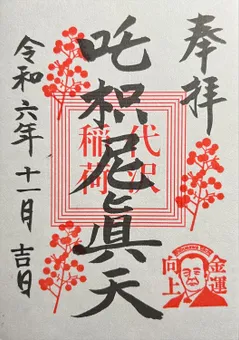 奉拝
吒枳尼眞天
代沢
稲荷
令和六年十一月吉日
金運
向上